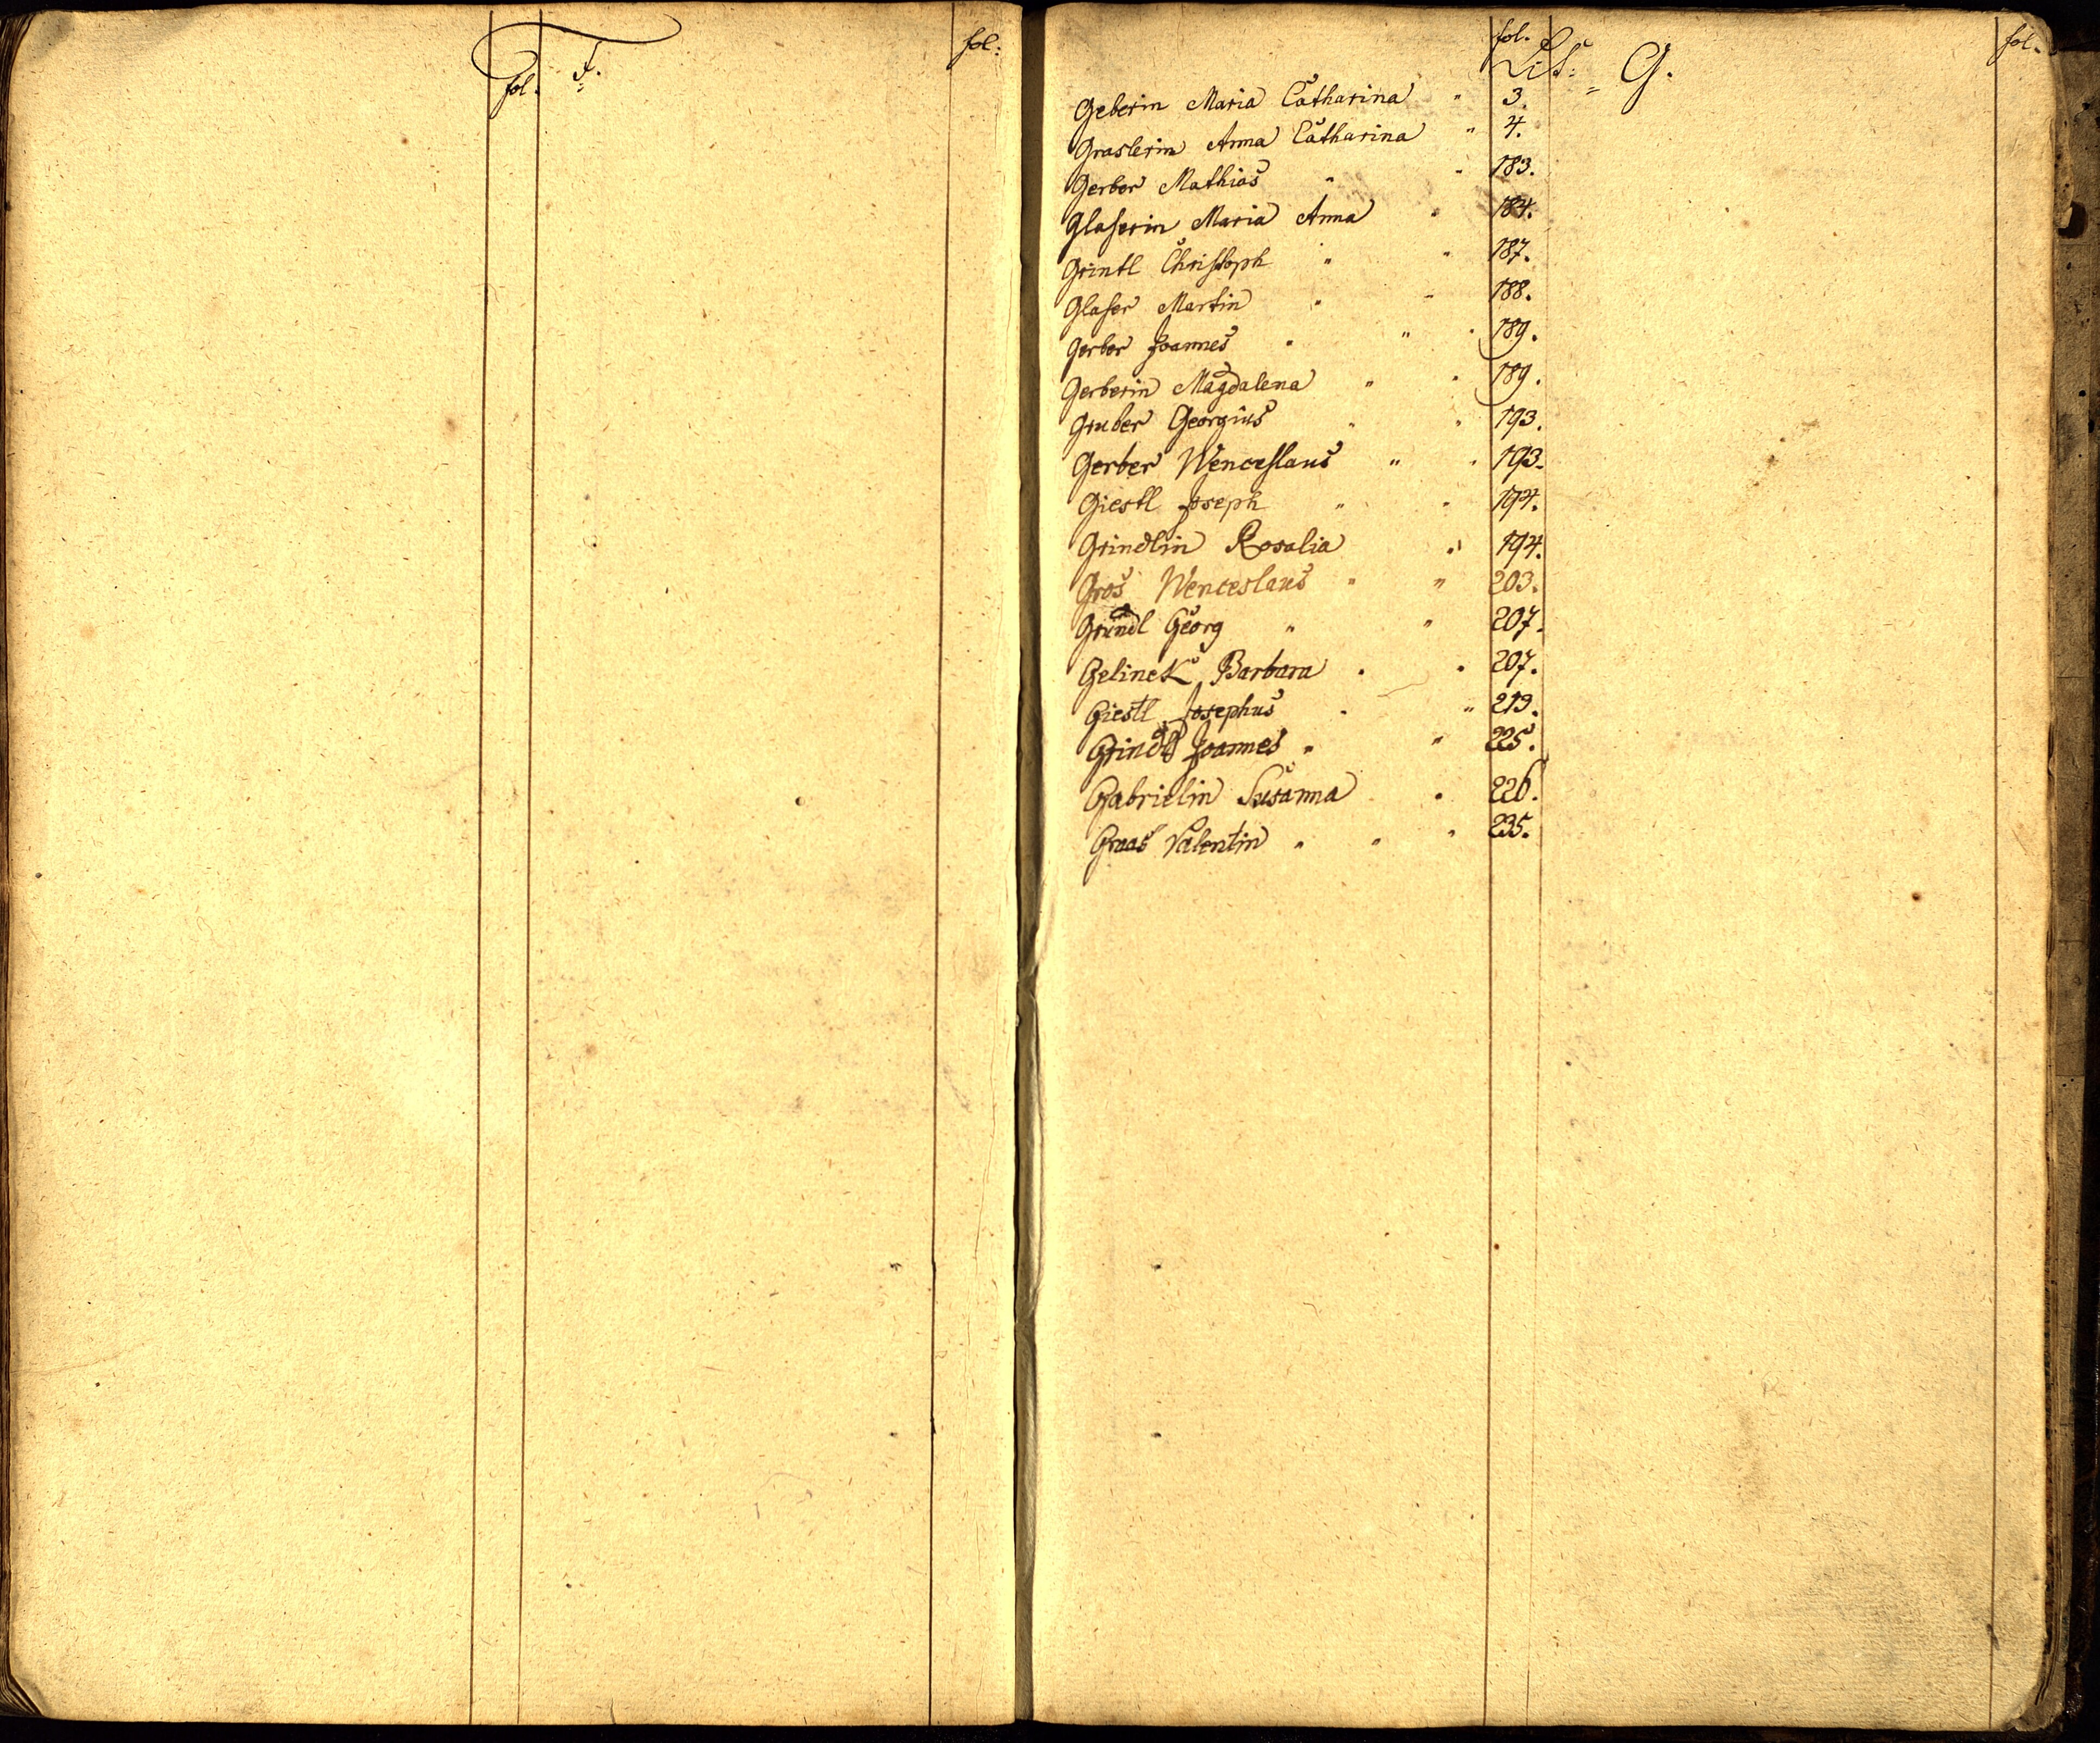 fol. F. fol:
fol. Lit: G. fol.
Geberin Maria Catharina " 3.
Graslerin Anna Catharina " 4.
Gerber Mathias " " 183.
Glaserin Maria Anna " 184.
Grintl Christoph " " 187.
Glaser Martin " " 188.
Gerber Joannes " " " 189.
Gerberin Magdalena " " 189.
Gruber Georgius " " 193.
Gerber Wenceslaus " " 193.
Giestl Joseph " " 194.
Grindlin Rosalia " 194.
Gros Wenceslaus " " 203.
Gründl Georg " " 207.
Gelinek Barbara " " 207.
Giestl Josephus " " 219.
Grindl Joannes " " 225.
Gabrielin Susanna " 226.
Graas Valentin " " " 235.